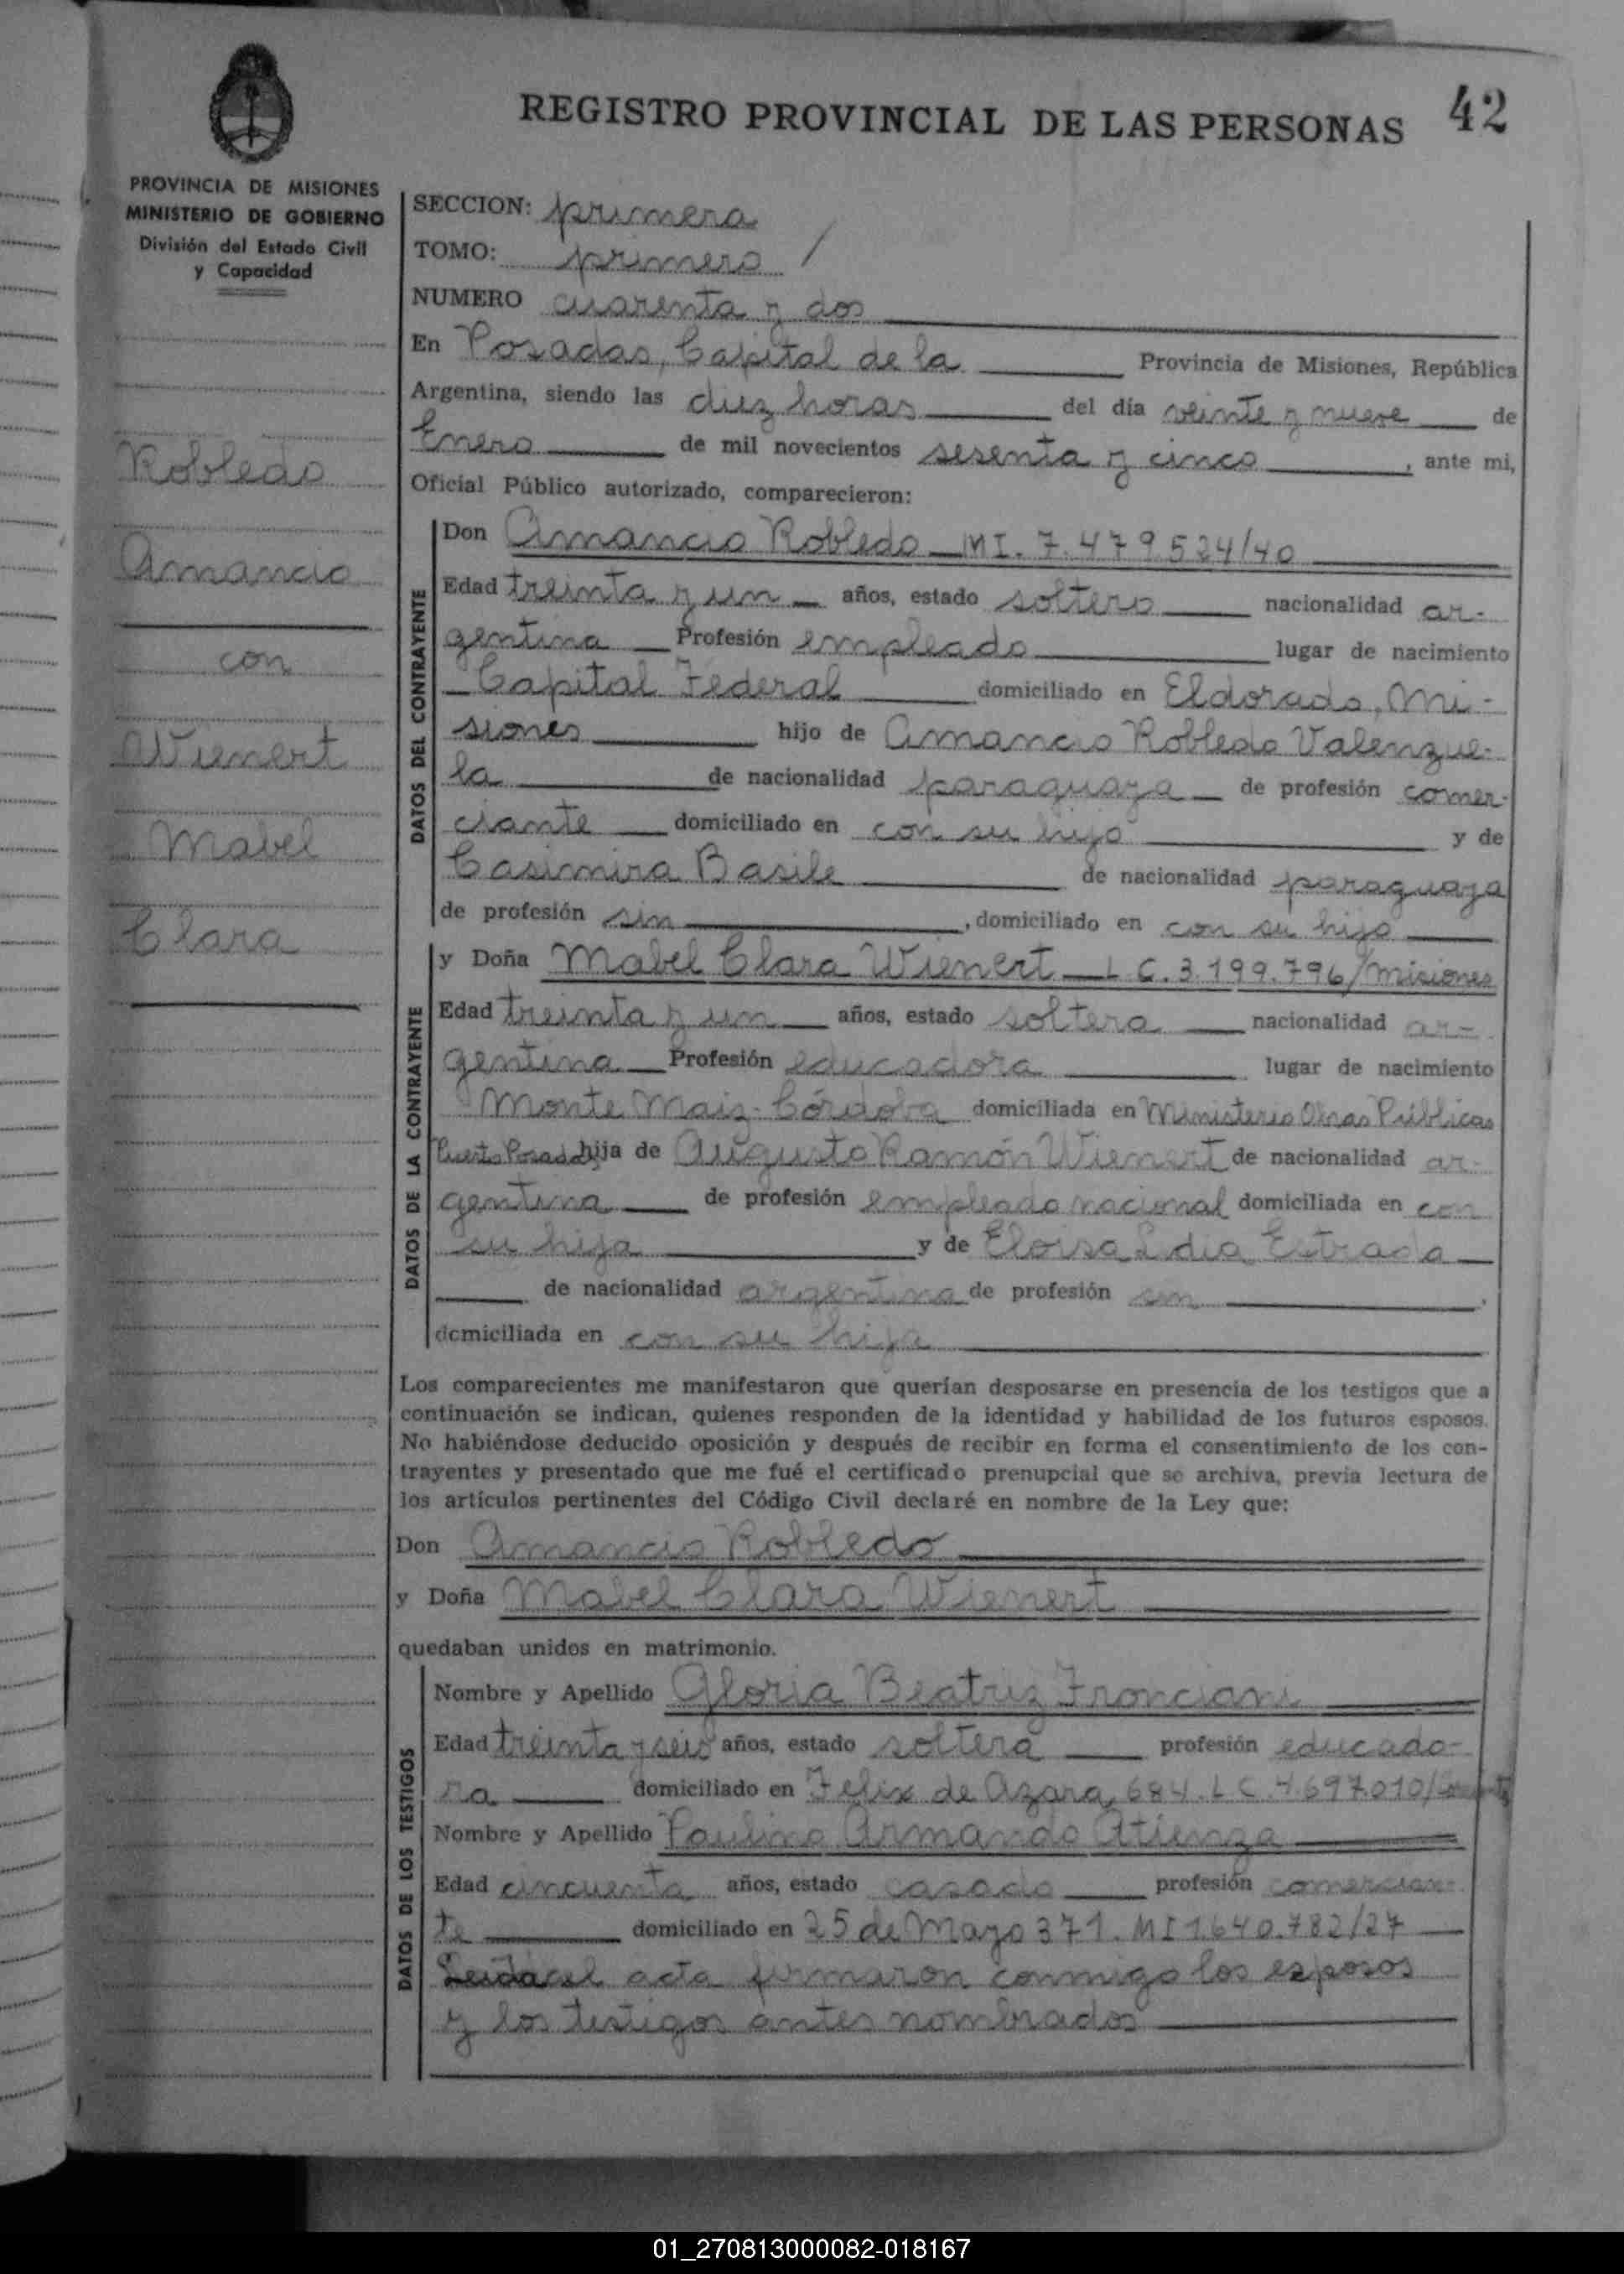 REGISTRO PROVINCIAL DE LAS PERSONAS 42
PROVINCIA DE MISIONES
MINISTERIO DE GOBIERNO
División del Estado Civil
y Capacidad
Robledo
Amancio
con
Wienert
Mabel
Clara
SECCION: primera
TOMO: primero /
NUMERO cuarenta y dos
En Posadas, Capital de la Provincia de Misiones, República
Argentina, siendo las diez horas del día veinte y nueve de
Enero de mil novecientos sesenta y cinco, ante mi,
Oficial Público autorizado, comparecieron:
DATOS DEL CONTRAYENTE
Don Amancio Robledo MI. 7.479.524/40
Edad treinta y un años, estado soltero nacionalidad ar-
gentina Profesión empleado lugar de nacimiento
Capital Federal domiciliado en Eldorado, Mi-
siones hijo de Amancio Robledo Valenzue-
la de nacionalidad paraguaya de profesión comer-
ciante domiciliado en con su hijo y de
Casimira Basile de nacionalidad paraguaya
de profesión sin, domiciliado en con su hijo
DATOS DE LA CONTRAYENTE
y Doña Mabel Clara Wienert L C. 3.199.796/Misiones
Edad treinta y un años, estado soltera nacionalidad ar-
gentina Profesión educadora lugar de nacimiento
Monte Maiz-Córdoba domiciliada en Ministerio Obras Públicas
Puerto Posadas hija de Augusto Ramón Wienert de nacionalidad ar-
gentina de profesión empleado nacional domiciliada en con
su hija y de Eloisa Lidia Estrada
de nacionalidad argentina de profesión sin,
domiciliada en con su hija
Los comparecientes me manifestaron que querían desposarse en presencia de los testigos que a
continuación se indican, quienes responden de la identidad y habilidad de los futuros esposos.
No habiéndose deducido oposición y después de recibir en forma el consentimiento de los con-
trayentes y presentado que me fué el certificado prenupcial que se archiva, previa lectura de
los artículos pertinentes del Código Civil declaré en nombre de la Ley que:
Don Amancio Robledo
y Doña Mabel Clara Wienert
quedaban unidos en matrimonio.
DATOS DE LOS TESTIGOS
Nombre y Apellido Gloria Beatriz Fronciani
Edad treinta y seis años, estado soltera profesión educado-
ra domiciliado en Felix de Azara 684. L C. 4.697.010/
Nombre y Apellido Paulino Armando Atienza
Edad cincuenta años, estado casado profesión comercian-
te domiciliado en 25 de Mayo 371. MI 1.640.782/27
Leída el acta firmaron conmigo los esposos
y los testigos antes nombrados
01_270813000082-018167